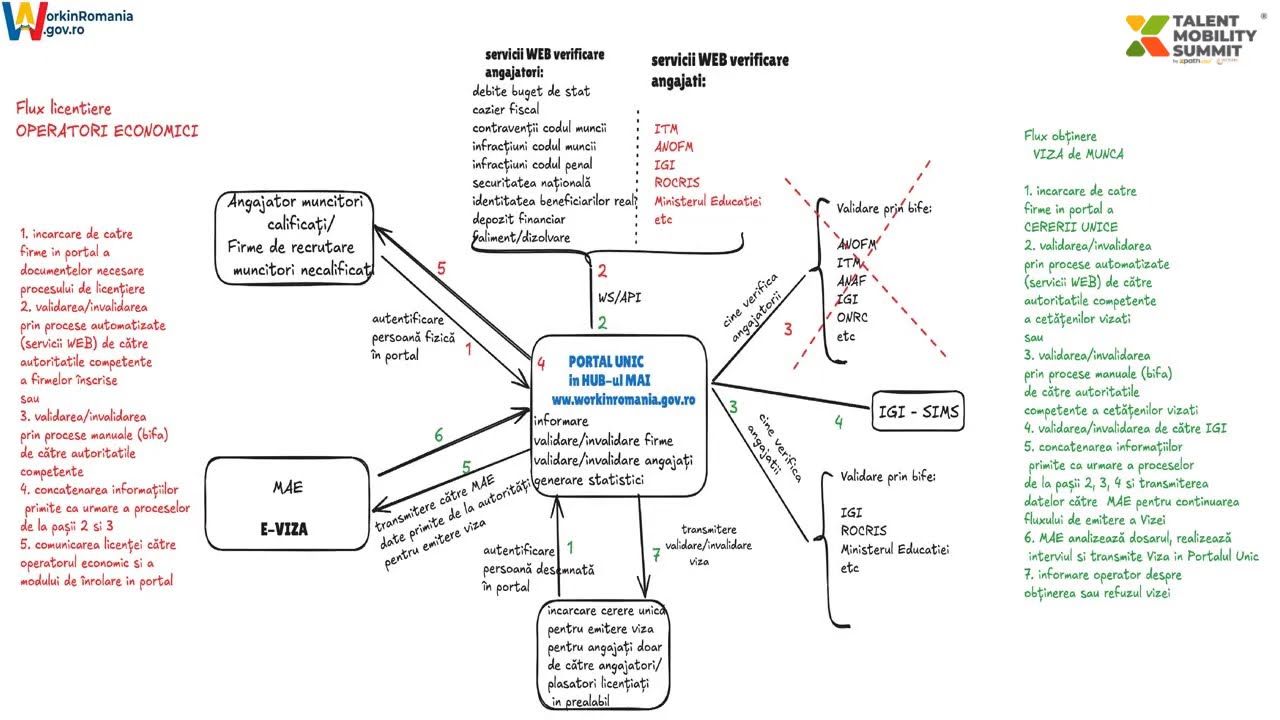 WorkinRomania
.gov.ro
TALENT
MOBILITY
SUMMIT
Flux licentiere
OPERATORI ECONOMICI
1. incarcare de catre
firme in portal a
documentelor necesare
procesului de licențiere
2. validarea/invalidarea
prin procese automatizate
(servicii WEB) de către
autoritatile competente
a firmelor înscrise
sau
3. validarea/invalidarea
prin procese manuale (bifa)
de către autoritatile
competente
4. concatenarea informațiilor
primite ca urmare a proceselor
de la pașii 2 si 3
5. comunicarea licenței către
operatorul economic si a
modului de înrolare in portal
servicii WEB verificare
angajatori:
debite buget de stat
cazier fiscal
contravenții codul muncii
infracțiuni codul muncii
infracțiuni codul penal
securitatea națională
identitatea beneficiarilor reali
depozit financiar
faliment/dizolvare
servicii WEB verificare
angajati:
ITM
ANOFM
IGI
ROCRIS
Ministerul Educatiei
etc
2
WS/API
2
Angajator muncitori
calificați/
Firme de recrutare
muncitori necalificați
5
autentificare
persoană fizică
în portal
1
4
PORTAL UNIC
in HUB-ul MAI
ww.workinromania.gov.ro
informare
validare/invalidare firme
validare/invalidare angajați
generare statistici
cine verifica
angajatorii
3
Validare prin bife:
ANOFM
ITM
ANAF
IGI
ONRC
etc
4
IGI - SIMS
3
cine verifica
angajatii
Validare prin bife:
IGI
ROCRIS
Ministerul Educatiei
etc
MAE
E-VIZA
6
5
transmitere către MAE
date primite de la autorități
pentru emitere viza
autentificare
persoană desemnată
în portal
1
7
transmitere
validare/invalidare
viza
incarcare cerere unică
pentru emitere viza
pentru angajați doar
de către angajatori/
plasatori licențiați
in prealabil
Flux obținere
VIZA de MUNCA
1. incarcare de catre
firme in portal a
CERERII UNICE
2. validarea/invalidarea
prin procese automatizate
(servicii WEB) de către
autoritatile competente
a cetățenilor vizati
sau
3. validarea/invalidarea
prin procese manuale (bifa)
de către autoritatile
competente a cetățenilor vizati
4. validarea/invalidarea de către IGI
5. concatenarea informațiilor
primite ca urmare a proceselor
de la pașii 2, 3, 4 si transmiterea
datelor către MAE pentru continuarea
fluxului de emitere a Vizei
6. MAE analizează dosarul, realizează
interviul si transmite Viza in Portalul Unic
7. informare operator despre
obținerea sau refuzul vizei